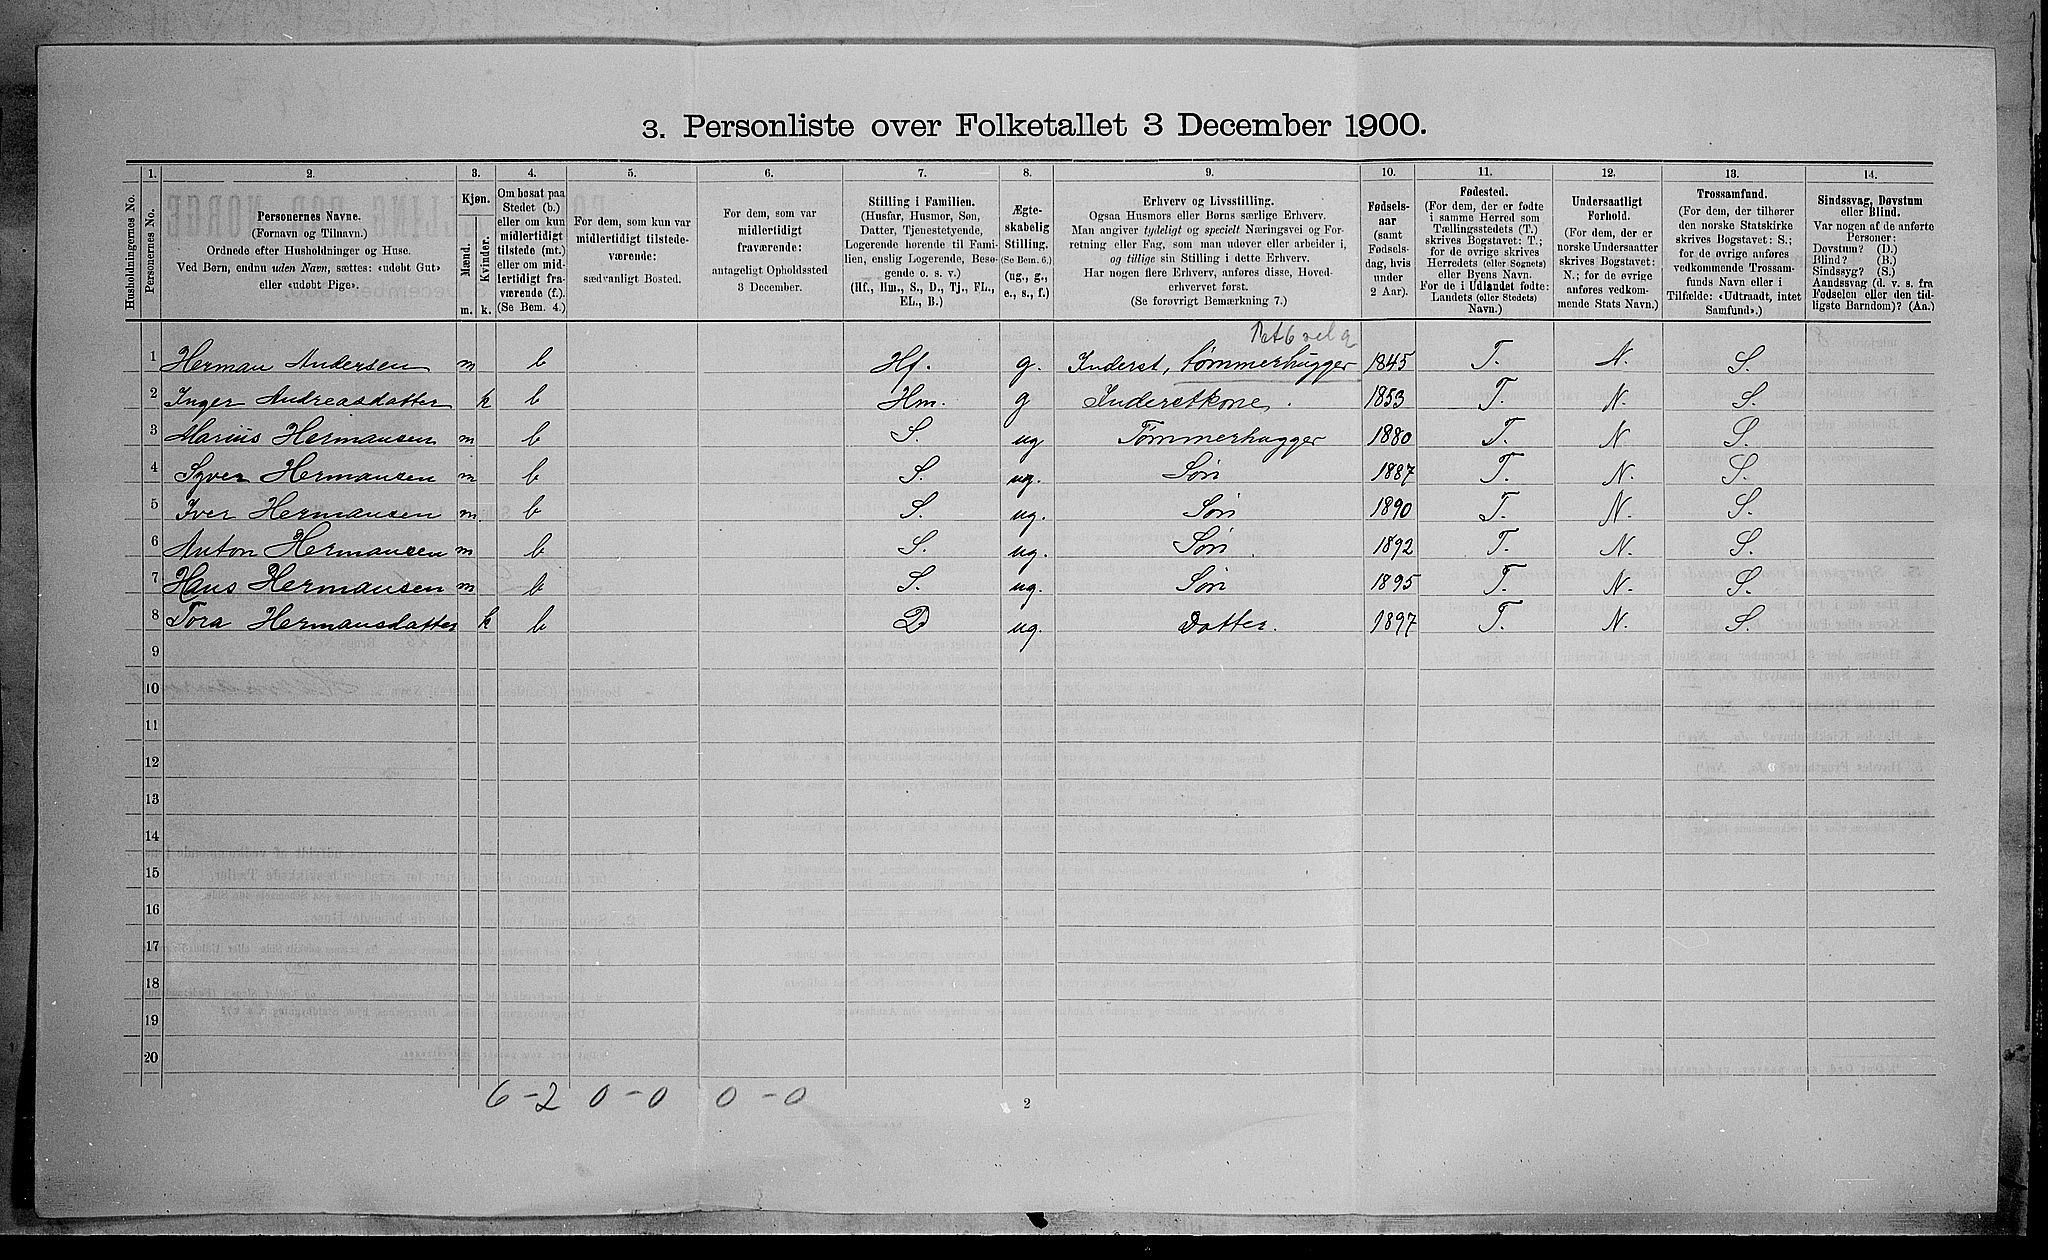 3. Personliste over Folketallet 3 December 1900.
1. 2. 3. 4. 5. 6. 7. 8. 9. 10. 11. 12. 13. 14.
Husholdningernes No.
Personernes No.
Personernes Navne.
(Fornavn og Tilnavn.)
Ordnede efter Husholdninger og Huse.
Ved Børn, endnu uden Navn, sættes: «udøbt Gut»
eller «udøbt Pige».
Kjøn.
Mænd.
Kvinder.
m. k.
Om bosat paa
Stedet (b.)
eller om kun
midlertidigt
tilstede (mt.)
eller om mid-
lertidigt fra-
værende (f.).
(Se Bem. 4.)
For dem, som kun var
midlertidigt tilstede-
værende:
sædvanligt Bosted.
For dem, som var
midlertidigt
fraværende:
antageligt Opholdssted
3 December.
Stilling i Familien.
(Husfar, Husmor, Søn,
Datter, Tjenestetyende,
Logerende hørende til Fami-
lien, enslig Logerende, Besø-
gende o. s. v.)
(Hf., Hm., S., D., Tj., FL.,
EL., B.)
Ægte-
skabelig
Stilling.
(Se Bem. 6.)
(ug., g.,
e., s., f.)
Erhverv og Livsstilling.
Ogsaa Husmors eller Børns særlige Erhverv.
Man angiver tydeligt og specielt Næringsvei og For-
retning eller Fag, som man udøver eller arbeider i,
og tillige sin Stilling i dette Erhverv.
Har nogen flere Erhverv, anføres disse, Hoved-
erhvervet først.
(Se forøvrigt Bemærkning 7.)
Fødsels-
aar
(samt
Fødsels-
dag, hvis
under
2 Aar).
Fødested.
(For dem, der er fødte
i samme Herred som
Tællingsstedets (T.)
skrives Bogstavet: T.;
for de øvrige skrives
Herredets (eller Sognets)
eller Byens Navn.
For de i Udlandet fødte:
Landets (eller Stedets)
Navn.)
Undersaatligt
Forhold.
(For dem, der er
norske Undersaatter
skrives Bogstavet:
N.; for de øvrige
anføres vedkom-
mende Stats Navn.)
Trossamfund.
(For dem, der tilhører
den norske Statskirke
skrives Bogstavet: S.;
for de øvrige anføres
vedkommende Trossam-
funds Navn eller i
Tilfælde: «Udtraadt, intet
Samfund».)
Sindssvag, Døvstum
eller Blind.
Var nogen af de anførte
Personer:
Døvstum? (D.)
Blind? (B.)
Sindssyg? (S.)
Aandssvag (d. v. s. fra
Fødselen eller den tid-
ligste Barndom)? (Aa.)
1 Herman Andersen m b Hf. g. Inderst, tømmerhugger 1845 T. N. S.
2 Inger Andreasdatter k b Hm. g Inderstkone. 1853 T. N. S.
3 Marius Hermansen m b S. ug Tømmerhugger 1880 T. N S.
4 Syver Hermansen m b S. ug. Søn 1887 T. N. S.
5 Iver Hermansen m. b S. ug. Søn 1890 T. N. S.
6 Anton Hermansen m b S. ug. Søn. 1892 T. N. S.
7 Hans Hermansen m b S. ug. Søn 1895 T. N. S.
8 Tora Hermansdatter k b D ug. Datter. 1897 T. N. S.
9
10
11
12
13
14
15
16
17
18
19
20
6-2 0-0 0-0
2